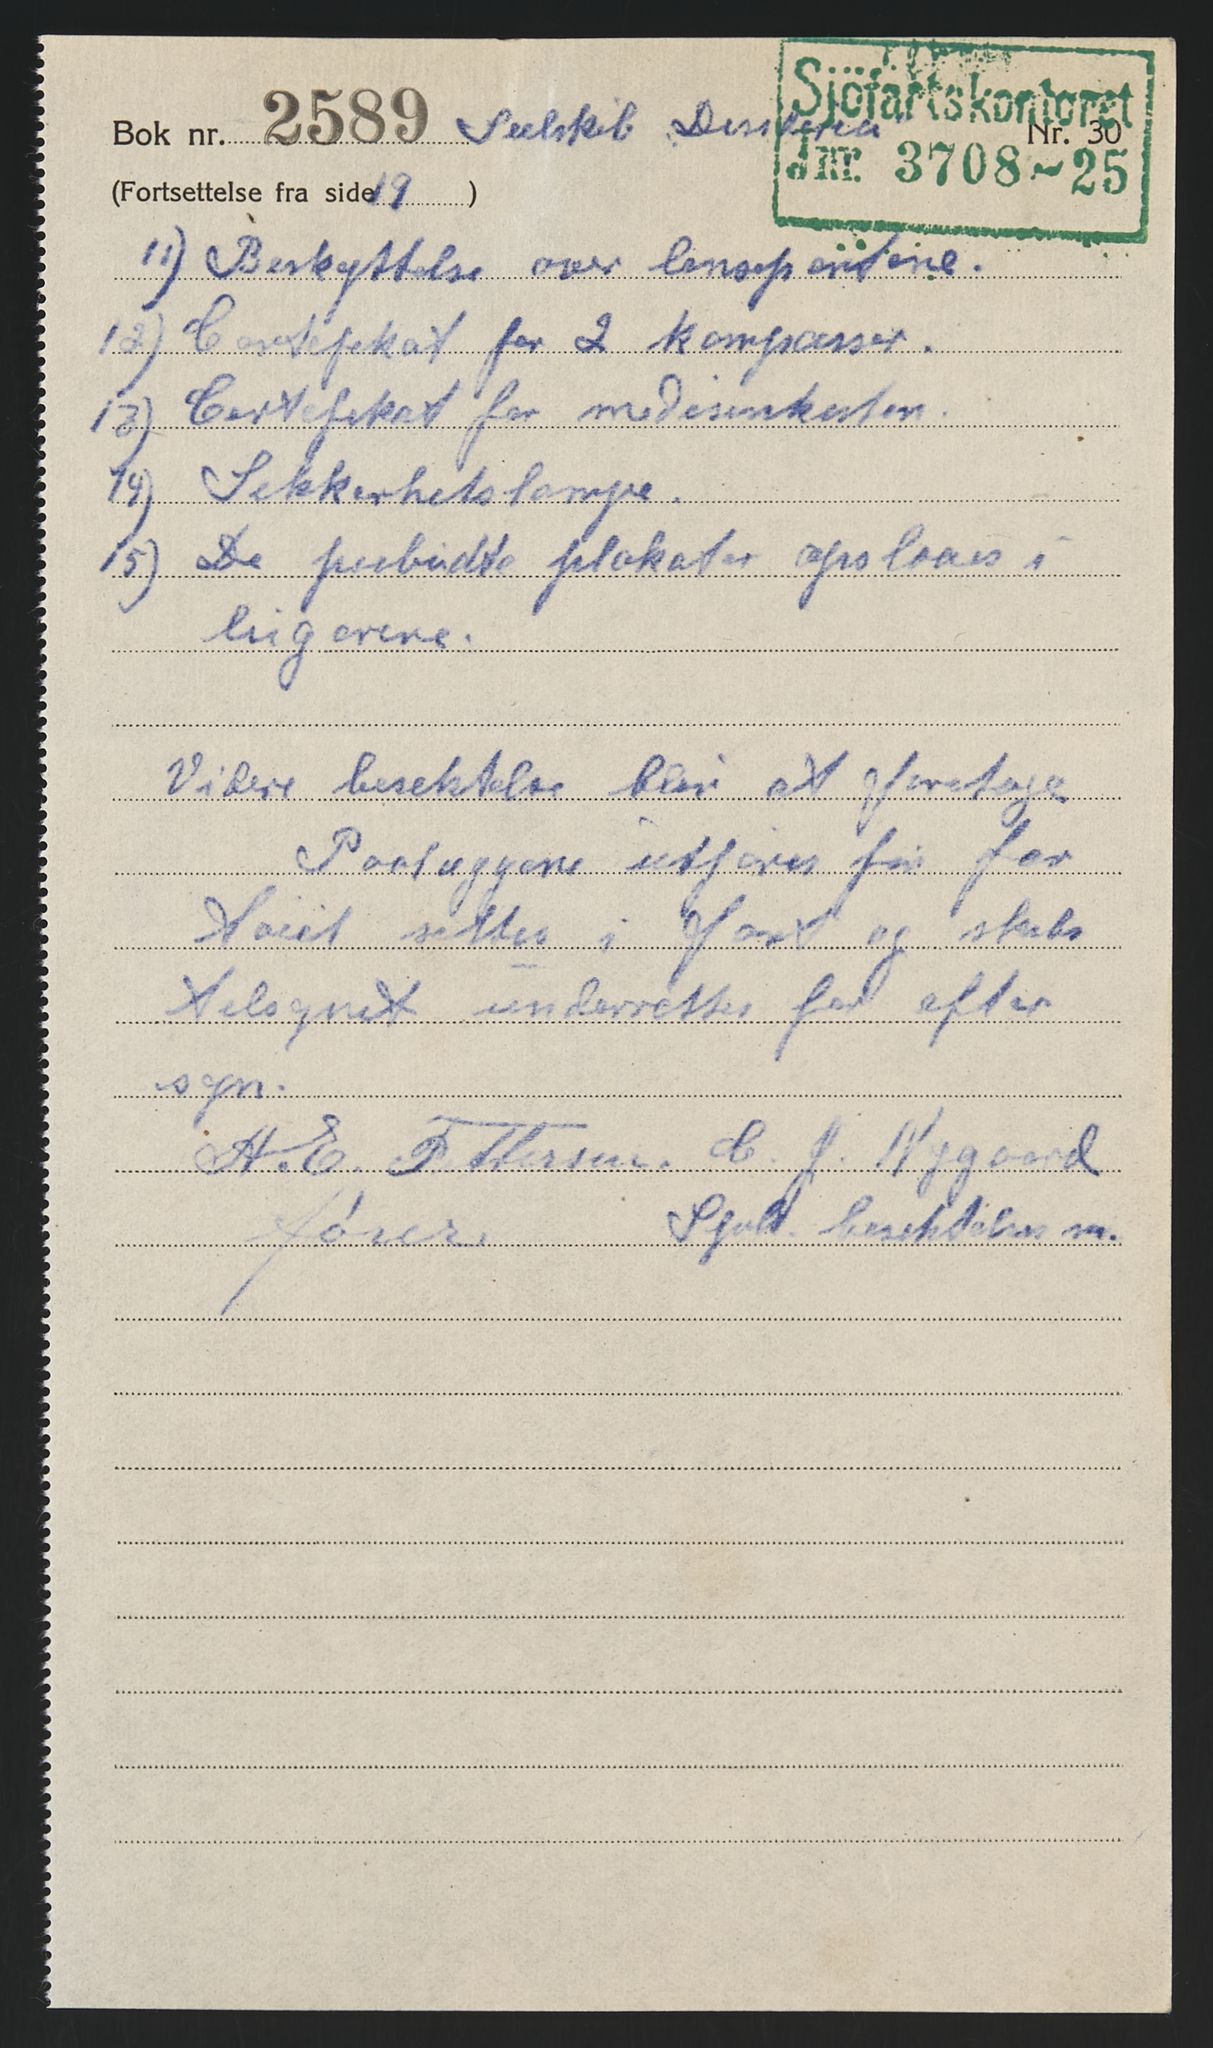 Bok nr. 2589 Seelskib Desideria Nr. 30
Sjöfartskontoret
Jnr. 3708-25
(Fortsettelse fra side 19 )
11) Beskyttelse over lensepentene.
12) Certefekat for 2 kompasser.
13) Certefekat for medisenkesten.
14) Sekkerhetslampe.
15) De peebudte plakater opslaaes i
lugarene.
Videre besektelse bleir at foretage
Paalæggene utføres før far
tøiet settes i fart og skebs
telsynet underrettes for efter
syn.
H. E. Pettersen. C. J. Nygaard
fører. Sjøk. besektelses m.